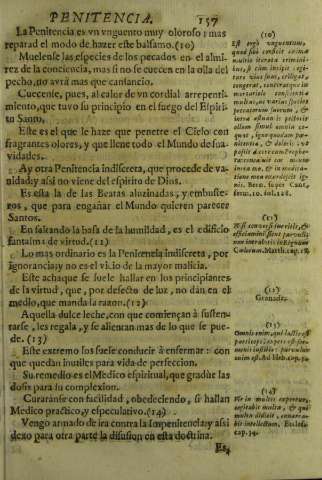 PENITENCIA. 157
La Penitencia es vn vnguento muy oloroso: mas
reparad el modo de hazer este balsamo.(10)
Muelense las especies de los pecados en el almi-
rez de la conciencia, mas si no se cuecen en la olla del
pecho, no avrà mas que cantancio.
Cuecente, pues, al calor de vn cordial arrepenti-
miento, que tuvo su principio en el fuego del Espiri-
tu Santo.
Este es el que le haze que penetre el Cielo con
fragrantes olores, y que llene todo el Mundo de sua-
vidades.
Ay otra Penitencia indiscreta, que procede de va-
nidad, y assi no viene del espiritu de Dios.
Es esta la de las Beatas aluzinadas, y embuste-
ros, que para engañar el Mundo quieren parecer
Santos.
En faltando la basa de la humildad, es el edificio
fantasma de virtud.(11)
Lo mas ordinario es la Penitencia indiscreta, por
ignorancia; y no es el vicio de la mayor malicia.
Este achaque se suele hallar en los principiantes
de la virtud, que, por defecto de luz, no dàn en el
medio, que manda la razon.(12)
Aquella dulce leche, con que comiençan à susten-
tarse, les regala, y se alientan mas de lo que se pue-
de.(13)
Este extremo los suele conducir à enfermar: con
que quedan inutiles para vida de perfeccion.
Su remedio es el Medico espiritual, que gradùe las
dosis para su complexion.
Curaránse con facilidad, obedeciendo, si hallan
Medico practico, y especulativo.(14)
Vengo armado de ira contra la impenitencia; y assi
dexo para otra parte la difusion en esta doctrina.
Es,
(10)
Est ergo vnguentum,
quod sibi conficit anima
multis irretita
criminibus, si cum
incipit cogitare vias suas, colligat,
congerat,
peccatorum suorum, &
Bern. super Cant.
serm. 10. fol. 118.
(11)
Nisi conversi fueritis, &
efficiamini sicut parvuli,
non intrabitis in Regnum
Cœlorum. Matth. cap. 18.
(12)
Granada.
(13)
Omnis enim, qui lactis est
particeps, expers est ser-
monis iustitiæ: parvulus
enim est. Ad Heb. cap. 5.
(14)
Vir in multis expertus,
cogitabit multa, & qui
multa didicit, enarra-
bit intellectum. Eccles.
cap. 34.